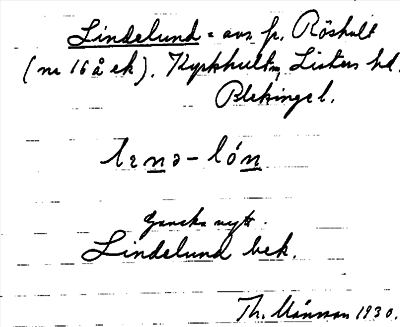 Lindelund = avs. fr. Röshult
(nr 16 å ek). Kyrkhults sn, Listers hd.
Blekinge l.
lɪnə-lón
Ganska nytt.
Lindelund bek.
Th. Månsson 1930.